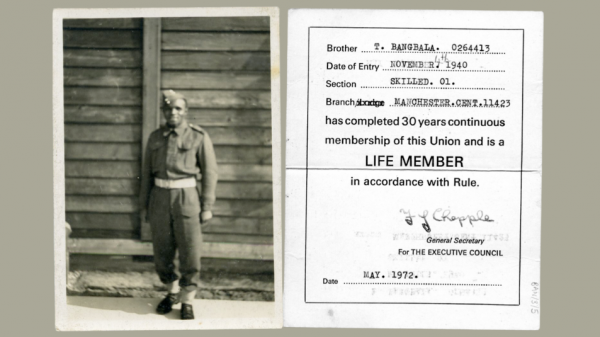 Brother T. BANGBALA. 0264413
Date of Entry NOVEMBER. 1940
Section SKILLED. 01.
Branch MANCHESTER.CENT.11423
has completed 30 years continuous
membership of this Union and is a
LIFE MEMBER
in accordance with Rule.
Chapple
General Secretary
For THE EXECUTIVE COUNCIL
Date MAY. 1972.